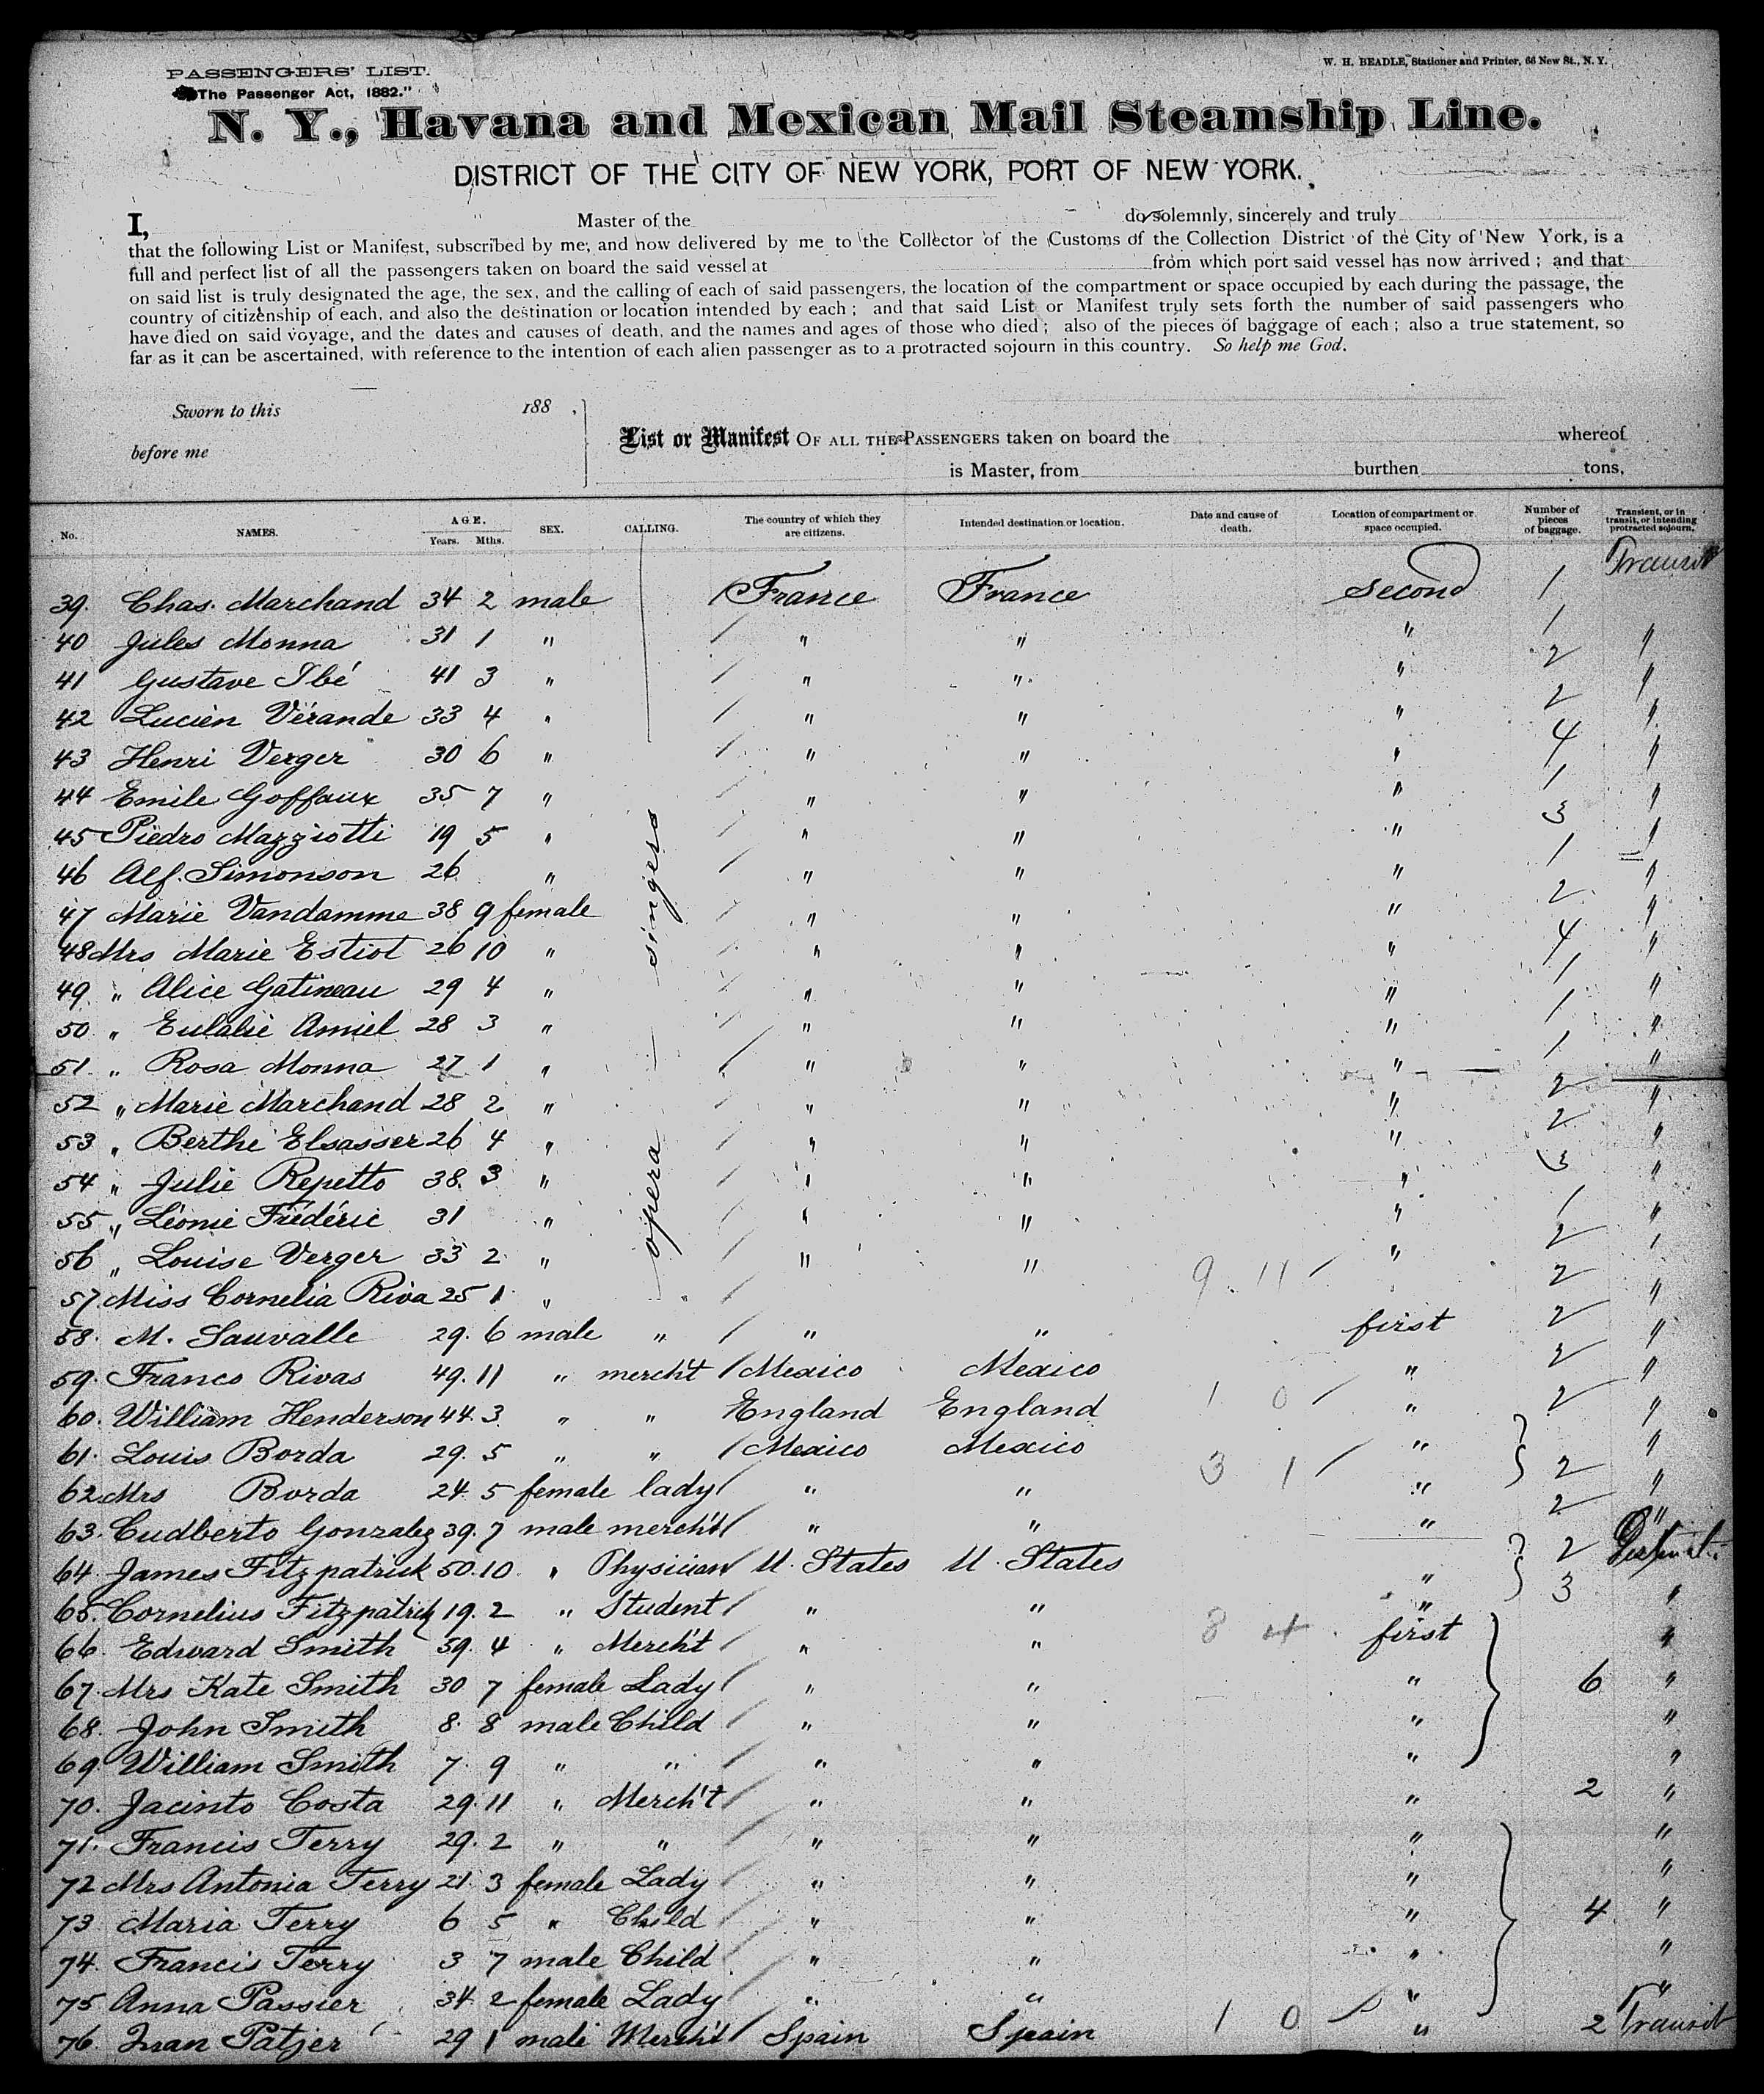 PASSENGERS' LIST.
"The Passenger Act, 1882."
W. H. BEADLE, Stationer and Printer, 66 New St., N. Y.
N. Y., Havana and Mexican Mail Steamship Line.
DISTRICT OF THE CITY OF NEW YORK, PORT OF NEW YORK.
I, Master of the do solemnly, sincerely and truly
that the following List or Manifest, subscribed by me, and now delivered by me to the Collector of the Customs of the Collection District of the City of New York, is a
full and perfect list of all the passengers taken on board the said vessel at from which port said vessel has now arrived; and that
on said list is truly designated the age, the sex, and the calling of each of said passengers, the location of the compartment or space occupied by each during the passage, the
country of citizenship of each, and also the destination or location intended by each; and that said List or Manifest truly sets forth the number of said passengers who
have died on said voyage, and the dates and causes of death, and the names and ages of those who died; also of the pieces of baggage of each; also a true statement, so
far as it can be ascertained, with reference to the intention of each alien passenger as to a protracted sojourn in this country. So help me God.
Sworn to this 188 ,
before me
List or Manifest OF ALL THE PASSENGERS taken on board the whereof
is Master, from burthen tons,
No. NAMES. AGE. Years. Mths. SEX. CALLING. The country of which they are citizens. Intended destination or location. Date and cause of death. Location of compartment or space occupied. Number of pieces of baggage. Transient, or in transit, or intending protracted sojourn.
39. Chas. Marchand 34 2 male France France second 1 Transit
40 Jules Monna 31 1 " " " " 1 "
41 Gustave Ibé 41 3 " " " " 2 "
42 Lucien Vérande 33 4 " " " " 2 "
43 Henri Verger 30 6 " " " " 4 "
44 Emile Goffaux 35 7 " " " " 1 "
45 Piedro Mazziotti 19 5 " " " " 3 "
46 Alf. Simonson 26 " " " " 1 "
47 Marie Vandamme 38 9 female " " " 2 "
48 Mrs Marie Estiot 26 10 " " " " 4 "
49 " Alice Gatineau 29 4 " " " " 1 "
50 " Eulalie Amiel 28 3 " " " " 1 "
51. " Rosa Monna 27 1 " " " " 1 "
52 " Marie Marchand 28 2 " " " " 2 "
53 " Berthe Elsasser 26 4 " " " " 2 "
54 " Julie Repetto 38. 3 " " " " 3 "
55 " Léonie Frédéric 31 " " " " 1 "
56 " Louise Verger 33 2 " " " " 2 "
opera singers
57. Miss Cornelia Riva 25 1 " " 9. 11 2 "
58. M. Sauvalle 29. 6 male " " " first 2 "
59. Franco Rivas 49. 11 " mercht Mexico Mexico " 2 "
60. William Henderson 44. 3 " " England England 1 0 " 2 "
61. Louis Borda 29. 5 " " Mexico Mexico " "
62. Mrs Borda 24. 5 female lady " " 3 1 " 2 "
63. Cudberto Gonzalez 39. 7 male mercht " " " 2 "
64. James Fitzpatrick 50. 10 " Physician U. States U. States " 2
65. Cornelius Fitzpatrick 19. 2 " Student " " " 3 "
66. Edward Smith 59. 4 " Merch't " " 8 4 first "
67. Mrs Kate Smith 30 7 female Lady " " " 6 "
68. John Smith 8. 8 male Child " " " "
69. William Smith 7. 9 " " " " " "
70. Jacinto Costa 29. 11 " Merch't " " " 2 "
71. Francis Terry 29. 2 " " " " " "
72 Mrs Antonia Terry 21 3 female Lady " " " "
73 Maria Terry 6 5 " Child " " " 4 "
74. Francis Terry 3 7 male Child " " " "
75. Anna Passier 34 2 female Lady " " " "
76. Juan Patjer 29 1 male Merch't Spain Spain 1 0 " 2 Transit